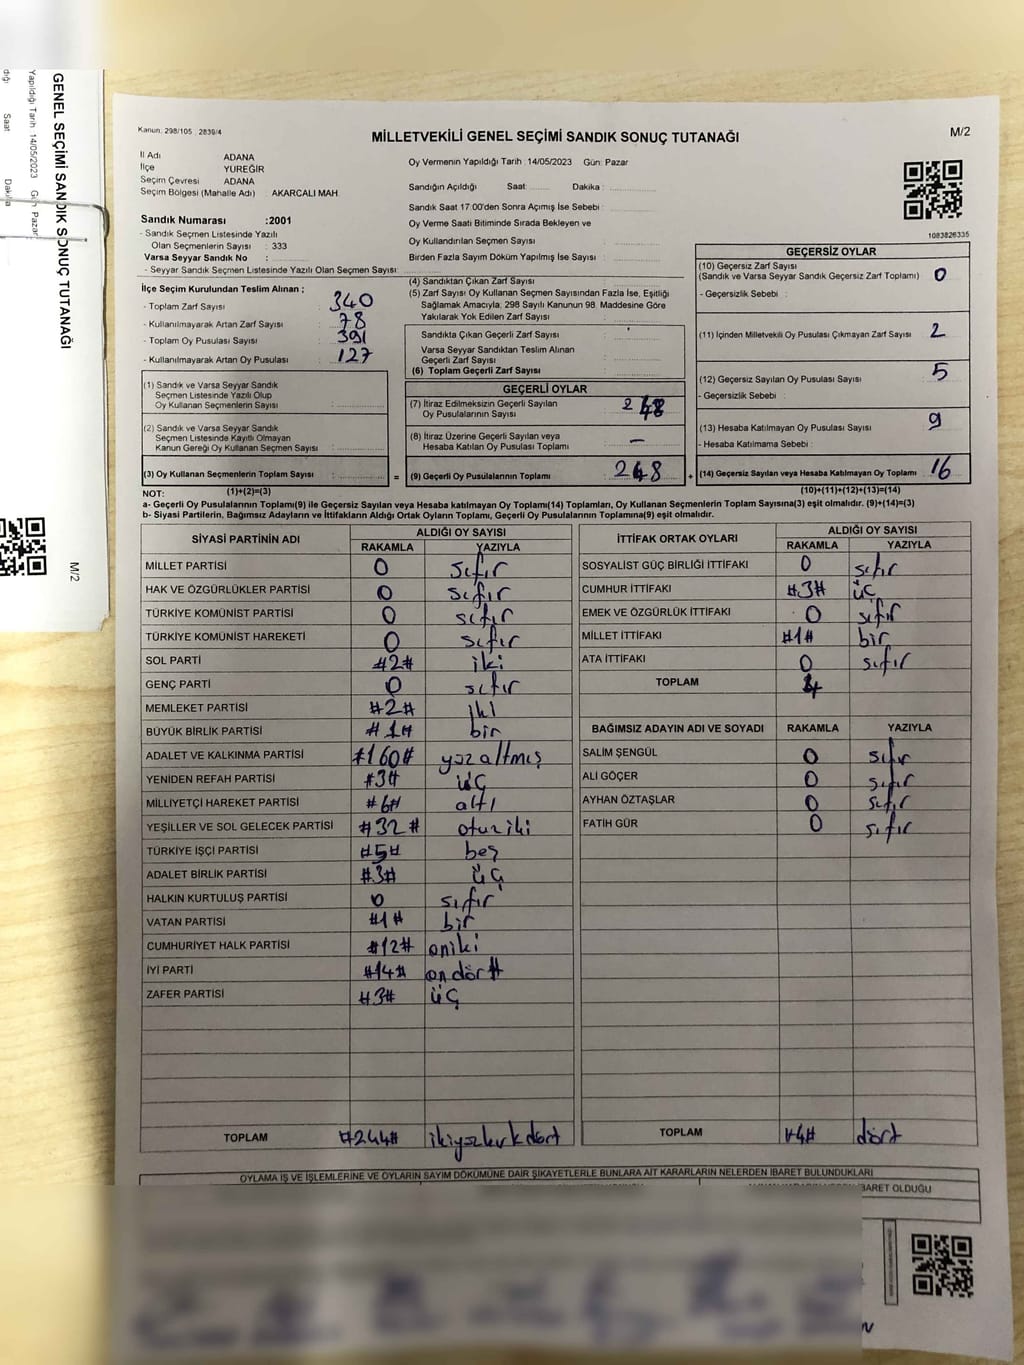 Kanun: 298/105 , 2839/4
MİLLETVEKİLİ GENEL SEÇİMİ SANDIK SONUÇ TUTANAĞI
M/2
İl Adı ADANA
İlçe YUREĞİR
Seçim Çevresi ADANA
Seçim Bölgesi (Mahalle Adı) : AKARCALI MAH.
Oy Vermenin Yapıldığı Tarih :14/05/2023 Gün: Pazar
Sandığın Açıldığı Saat:........ Dakika : ...............
Sandık Saat 17:00'den Sonra Açımış İse Sebebi : ...............
Oy Verme Saati Bitiminde Sırada Bekleyen ve
Oy Kullandırılan Seçmen Sayısı : ...............
Birden Fazla Sayım Döküm Yapılmış İse Sayısı : ...............
1083826335
Sandık Numarası :2001
- Sandık Seçmen Listesinde Yazılı
Olan Seçmenlerin Sayısı : 333
Varsa Seyyar Sandık No : ...............
- Seyyar Sandık Seçmen Listesinde Yazılı Olan Seçmen Sayısı: ...............
İlçe Seçim Kurulundan Teslim Alınan ;
- Toplam Zarf Sayısı : 340
- Kullanılmayarak Artan Zarf Sayısı : 78
- Toplam Oy Pusulası Sayısı : 391
- Kullanılmayarak Artan Oy Pusulası : 127
(1) Sandık ve Varsa Seyyar Sandık
Seçmen Listesinde Yazılı Olup
Oy Kullanan Seçmenlerin Sayısı : ...............
(2) Sandık ve Varsa Seyyar Sandık
Seçmen Listesinde Kayıtlı Olmayan
Kanun Gereği Oy Kullanan Seçmen Sayısı : ...............
(3) Oy Kullanan Seçmenlerin Toplam Sayısı : ............... =
(4) Sandıktan Çıkan Zarf Sayısı : ...............
(5) Zarf Sayısı Oy Kullanan Seçmen Sayısından Fazla İse, Eşitliği
Sağlamak Amacıyla; 298 Sayılı Kanunun 98. Maddesine Göre
Yakılarak Yok Edilen Zarf Sayısı : ...............
Sandıkta Çıkan Geçerli Zarf Sayısı : ...............
Varsa Seyyar Sandıktan Teslim Alınan
Geçerli Zarf Sayısı : ...............
(6) Toplam Geçerli Zarf Sayısı : ...............
GEÇERLİ OYLAR
(7) İtiraz Edilmeksizin Geçerli Sayılan
Oy Pusulalarının Sayısı : 248
(8) İtiraz Üzerine Geçerli Sayılan veya
Hesaba Katılan Oy Pusulası Toplamı : —
(9) Geçerli Oy Pusulalarının Toplamı : 248 +
GEÇERSİZ OYLAR
(10) Geçersiz Zarf Sayısı
(Sandık ve Varsa Seyyar Sandık Geçersiz Zarf Toplamı) : 0
- Geçersizlik Sebebi :
(11) İçinden Milletvekili Oy Pusulası Çıkmayan Zarf Sayısı : 2
(12) Geçersiz Sayılan Oy Pusulası Sayısı : 5
- Geçersizlik Sebebi :
(13) Hesaba Katılmayan Oy Pusulası Sayısı : 9
- Hesaba Katılmama Sebebi :
(14) Geçersiz Sayılan veya Hesaba Katılmayan Oy Toplamı : 16
NOT: (1)+(2)=(3) (10)+(11)+(12)+(13)=(14)
a- Geçerli Oy Pusulalarının Toplamı(9) ile Geçersiz Sayılan veya Hesaba katılmayan Oy Toplamı(14) Toplamları, Oy Kullanan Seçmenlerin Toplam Sayısına(3) eşit olmalıdır. (9)+(14)=(3)
b- Siyasi Partilerin, Bağımsız Adayların ve İttifakların Aldığı Ortak Oyların Toplamı, Geçerli Oy Pusulalarının Toplamına(9) eşit olmalıdır.
SİYASİ PARTİNİN ADI ALDIĞI OY SAYISI
RAKAMLA YAZIYLA
MİLLET PARTİSİ 0 sıfır
HAK VE ÖZGÜRLÜKLER PARTİSİ 0 sıfır
TÜRKİYE KOMÜNİST PARTİSİ 0 sıfır
TÜRKİYE KOMÜNİST HAREKETİ 0 sıfır
SOL PARTİ #2# iki
GENÇ PARTİ 0 sıfır
MEMLEKET PARTİSİ #2# iki
BÜYÜK BİRLİK PARTİSİ #1# bir
ADALET VE KALKINMA PARTİSİ #160# yüzaltmış
YENİDEN REFAH PARTİSİ #3# üç
MİLLİYETÇİ HAREKET PARTİSİ #6# altı
YEŞİLLER VE SOL GELECEK PARTİSİ #32# otuziki
TÜRKİYE İŞÇİ PARTİSİ #5# beş
ADALET BİRLİK PARTİSİ #3# üç
HALKIN KURTULUŞ PARTİSİ 0 sıfır
VATAN PARTİSİ #1# bir
CUMHURİYET HALK PARTİSİ #12# oniki
İYİ PARTİ #14# ondört
ZAFER PARTİSİ #3# üç
TOPLAM #244# ikiyüzkırkdört
İTTİFAK ORTAK OYLARI ALDIĞI OY SAYISI
RAKAMLA YAZIYLA
SOSYALİST GÜÇ BİRLİĞİ İTTİFAKI 0 sıfır
CUMHUR İTTİFAKI #3# üç
EMEK VE ÖZGÜRLÜK İTTİFAKI 0 sıfır
MİLLET İTTİFAKI #1# bir
ATA İTTİFAKI 0 sıfır
TOPLAM 4
BAĞIMSIZ ADAYIN ADI VE SOYADI RAKAMLA YAZIYLA
SALİM ŞENGÜL 0 sıfır
ALİ GÖÇER 0 sıfır
AYHAN ÖZTAŞLAR 0 sıfır
FATİH GÜR 0 sıfır
TOPLAM #4# dört
OYLAMA İŞ VE İŞLEMLERİNE VE OYLARIN SAYIM DÖKÜMÜNE DAİR ŞİKAYETLERLE BUNLARA AİT KARARLARIN NELERDEN İBARET BULUNDUKLARI
BARET OLDUĞU
GENEL SEÇİMİ SANDIK SONUÇ TUTANAĞI
Yapıldığı Tarih :14/05/2023 Gün: Pazar
dığı Saat Dakika
M/2